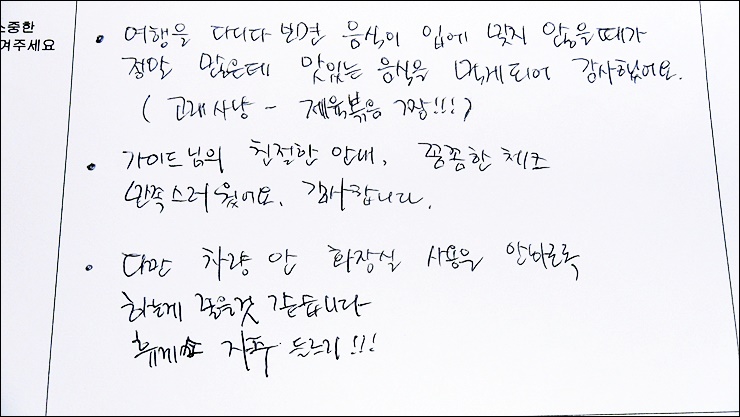 소중한
겨주세요
• 여행을 다니다 보면 음식이 입에 맞지 않을때가
정말 많은데 맛있는 음식을 먹게되어 감사했어요.
( 고래사냥 ~ 제육볶음 짱!!! )
• 가이드님의 친절한 안내, 꼼꼼한 체크
만족스러웠어요. 감사합니다.
• 다만 차량 안 화장실 사용을 안하도록
하는게 좋을것 같습니다
휴게소 자주 들르기!!!